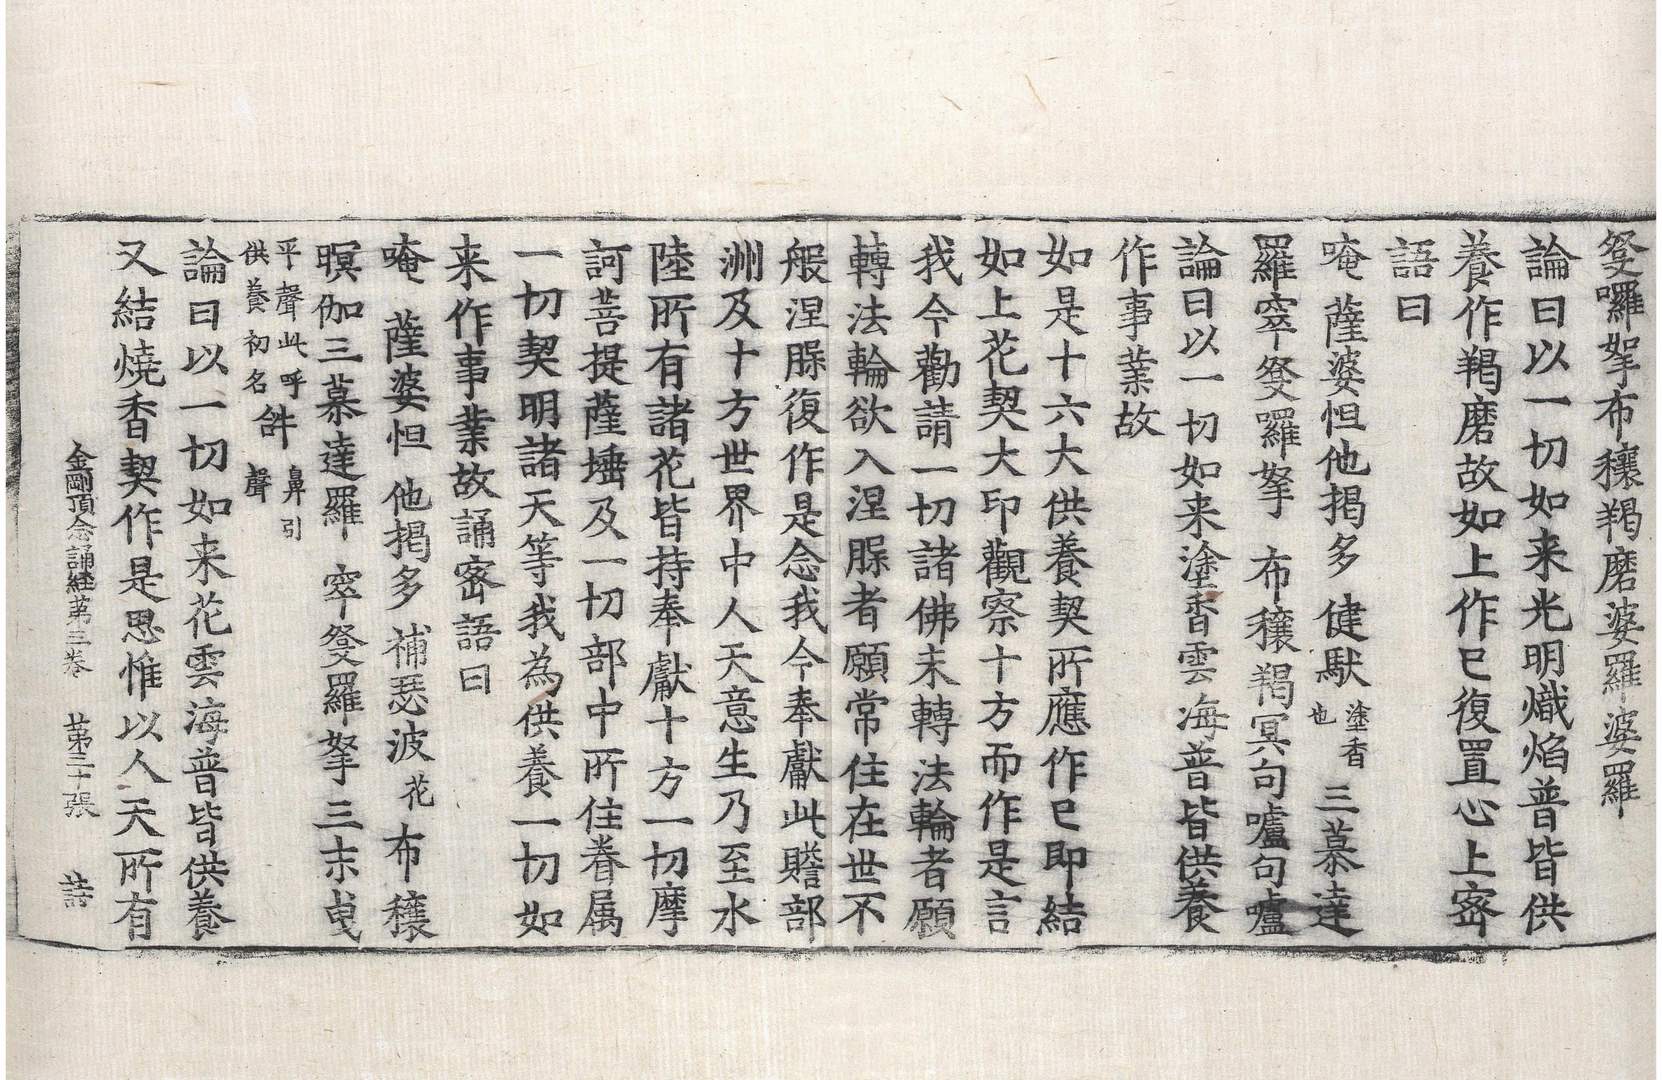 癹囉拏布穰羯磨婆羅婆羅
論曰以一切如来光明熾焰普皆供
養作羯磨故如上作已復置心上密
語曰
唵 薩婆怛他揭多 健馱塗香也 三慕達
羅窣癹羅拏 布穰羯冥句嚧句嚧
論曰以一切如来塗香雲海普皆供養
作事業故
如是十六大供養契所應作已即結
如上花契大印觀察十方而作是言
我今勸請一切諸佛未轉法輪者願
轉法輪欲入涅槃者願常住在世不
般涅槃復作是念我今奉獻此贍部
洲及十方世界中人天意生乃至水
陸所有諸花皆持奉獻十方一切摩
訶菩提薩埵及一切部中所住眷属
一切契明諸天等我為供養一切如
来作事業故誦密語曰
唵 薩婆怛 他揭多 補瑟波花 布穰
暝伽三慕達羅 窣癹羅拏三末曳
平聲此呼供養初名 𤙖 鼻引聲
論曰以一切如来花雲海普皆供養
又結燒香契作是思惟以人天所有
金剛頂念誦經苐三卷 苐三十張 詩